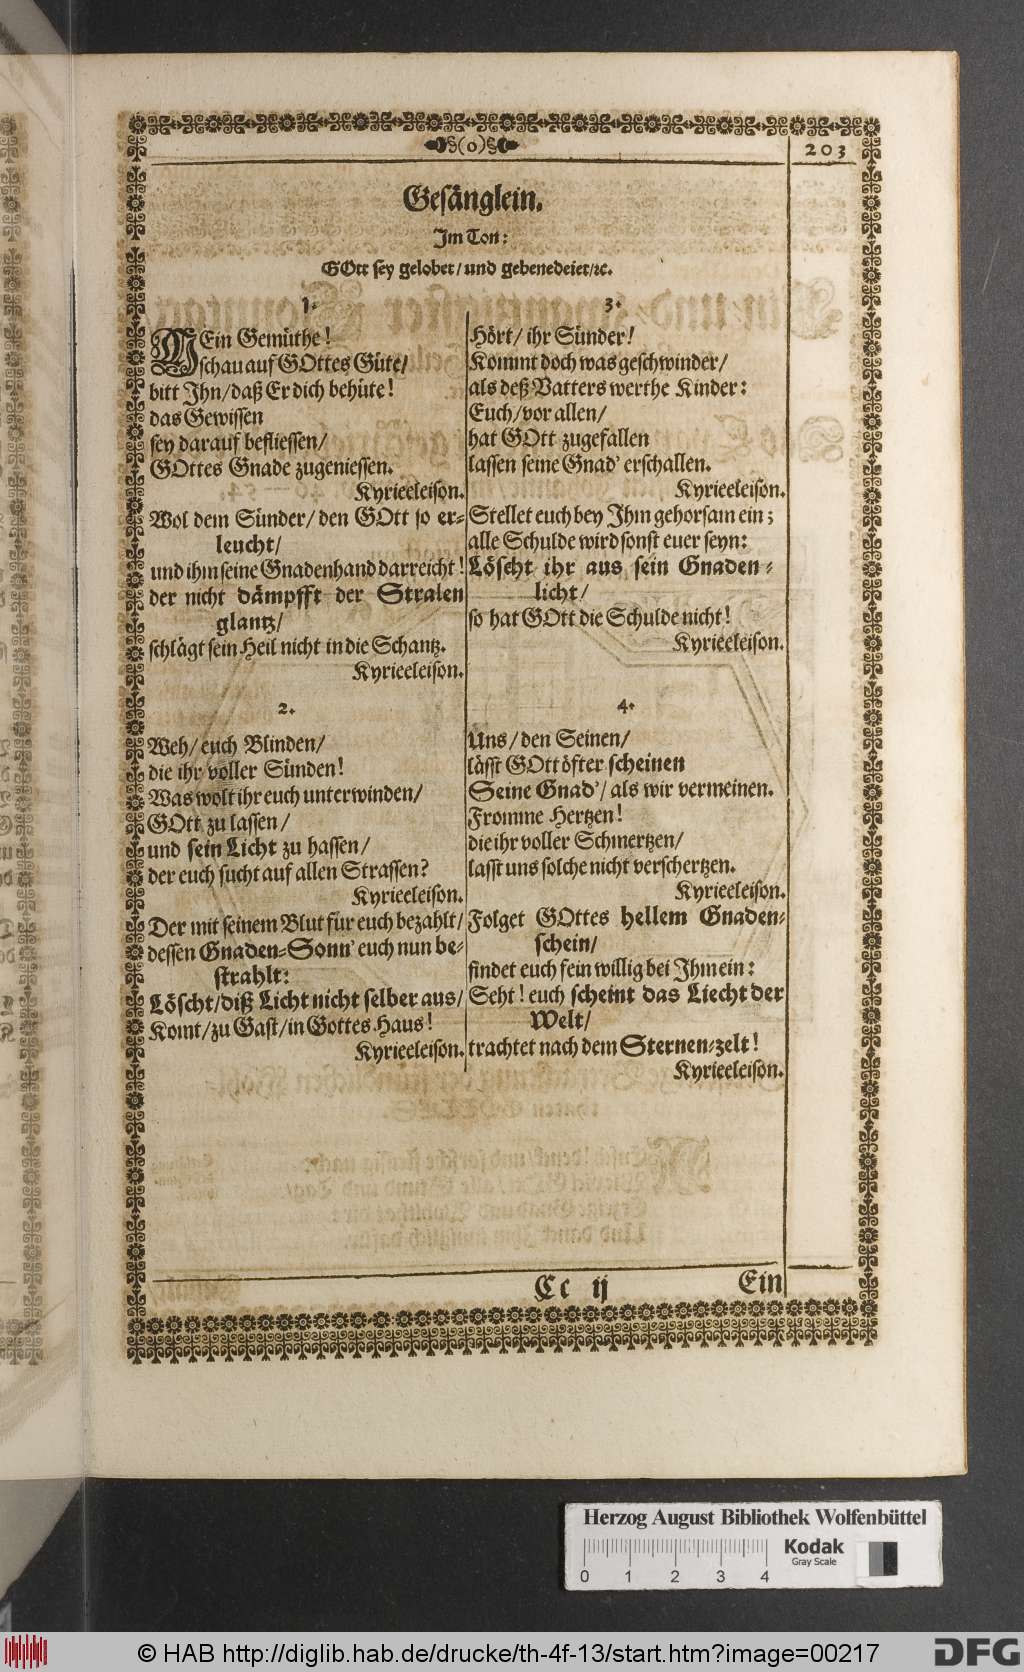 (o)
203
Gesänglein.
Im Ton:
GOtt sey gelobet/ und gebenedeiet/ꝛc.
1.
MEin Gemüthe!
schau auf GOttes Güte/
bitt Ihn/ daß Er dich behüte!
das Gewissen
sey darauf befliessen/
GOttes Gnade zugeniessen.
Kyrieeleison.
Wol dem Sünder/ den GOtt so er-
leucht/
und ihm seine Gnadenhand darreicht!
der nicht dämpfft der Stralen
glantz/
schlägt sein Heil nicht in die Schantz.
Kyrieeleison.
2.
Weh/ euch Blinden/
die ihr voller Sünden!
Was wolt ihr euch unterwinden/
GOtt zu lassen/
und sein Licht zu hassen/
der euch sucht auf allen Strassen?
Kyrieeleison.
Der mit seinem Blut für euch bezahlt/
dessen Gnaden-Sonn' euch nun be-
strahlt:
Löscht/ diß Licht nicht selber aus/
Komt/ zu Gast/ in Gottes Haus!
Kyrieeleison.
3.
Hört/ ihr Sünder!
Kommt doch was geschwinder/
als deß Vatters werthe Kinder:
Euch/ vor allen/
hat GOtt zugefallen
lassen seine Gnad' erschallen.
Kyrieeleison.
Stellet euch bey Ihm gehorsam ein;
alle Schulde wird sonst euer seyn:
Löscht ihr aus sein Gnaden-
licht/
so hat GOtt die Schulde nicht!
Kyrieeleison.
4.
Uns/ den Seinen/
lässt GOtt öfter scheinen
Seine Gnad'/ als wir vermeinen.
Fromme Hertzen!
die ihr voller Schmertzen/
lasst uns solche nicht verschertzen.
Kyrieeleison.
Folget GOttes hellem Gnaden-
schein/
findet euch fein willig bei Ihm ein:
Seht! euch scheint das Liecht der
Welt/
trachtet nach dem Sternen-zelt!
Kyrieeleison.
Cc ij
Ein
Herzog August Bibliothek Wolfenbüttel
Kodak
Gray Scale
0 1 2 3 4
© HAB http://diglib.hab.de/drucke/th-4f-13/start.htm?image=00217
DFG